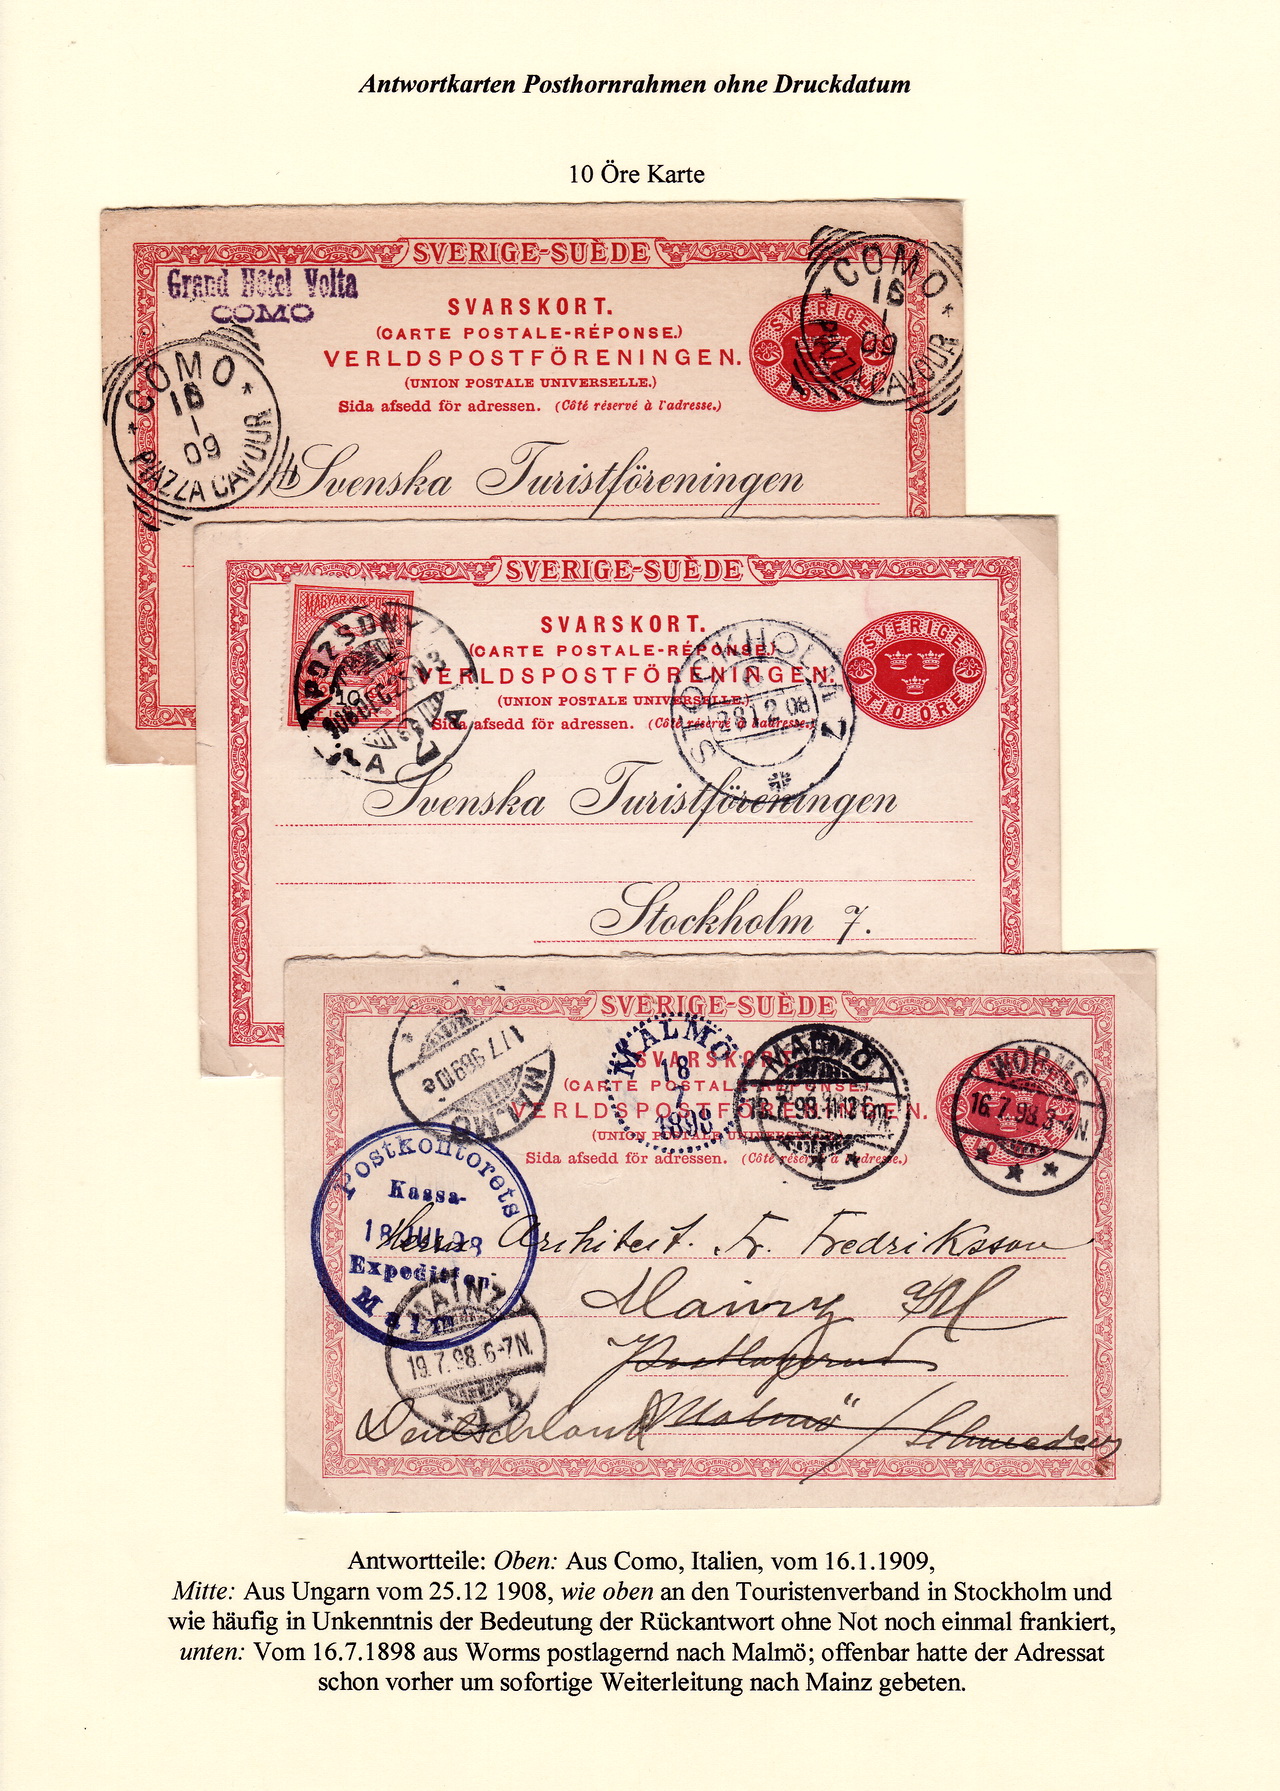 Antwortkarten Posthornrahmen ohne Druckdatum
10 Öre Karte
SVERIGE-SUÈDE
Grand Hôtel Volta
COMO
SVARSKORT.
(CARTE POSTALE-RÉPONSE.)
VERLDSPOSTFÖRENINGEN.
(UNION POSTALE UNIVERSELLE.)
Sida afsedd för adressen. (Côté réservé à l'adresse.)
SVERIGE
COMO
16
1
09
PIAZZA CAVOUR
COMO
16
1
09
PIAZZA CAVOUR
Svenska Turistföreningen
SVERIGE-SUÈDE
MAGYAR KIR. POSTA
POZSONY
SVARSKORT.
(CARTE POSTALE-RÉPONSE.)
VERLDSPOSTFÖRENINGEN.
(UNION POSTALE UNIVERSELLE.)
Sida afsedd för adressen. (Côté réservé à l'adresse.)
STOCKHOLM
28 12 08
SVERIGE
10 ÖRE
Svenska Turistföreningen
Stockholm 7.
SVERIGE-SUÈDE
SVARSKORT.
(CARTE POSTALE-RÉPONSE.)
VERLDSPOSTFÖRENINGEN.
(UNION POSTALE UNIVERSELLE.)
Sida afsedd för adressen. (Côté réservé à l'adresse.)
MALMÖ
MALMÖ
18
7
1898
MALMÖ
WORMS
16.7.98.
Postkontorets
Kassa-
18 JUL 98
Expedition
Malmö
MAINZ
19.7.98.6-7N.
Herrn Architect. Fr. Fredriksson
Mainz a/M
Postlagernd
Deutschland "Malmö" / Schweden
Antwortteile: Oben: Aus Como, Italien, vom 16.1.1909,
Mitte: Aus Ungarn vom 25.12 1908, wie oben an den Touristenverband in Stockholm und
wie häufig in Unkenntnis der Bedeutung der Rückantwort ohne Not noch einmal frankiert,
unten: Vom 16.7.1898 aus Worms postlagernd nach Malmö; offenbar hatte der Adressat
schon vorher um sofortige Weiterleitung nach Mainz gebeten.